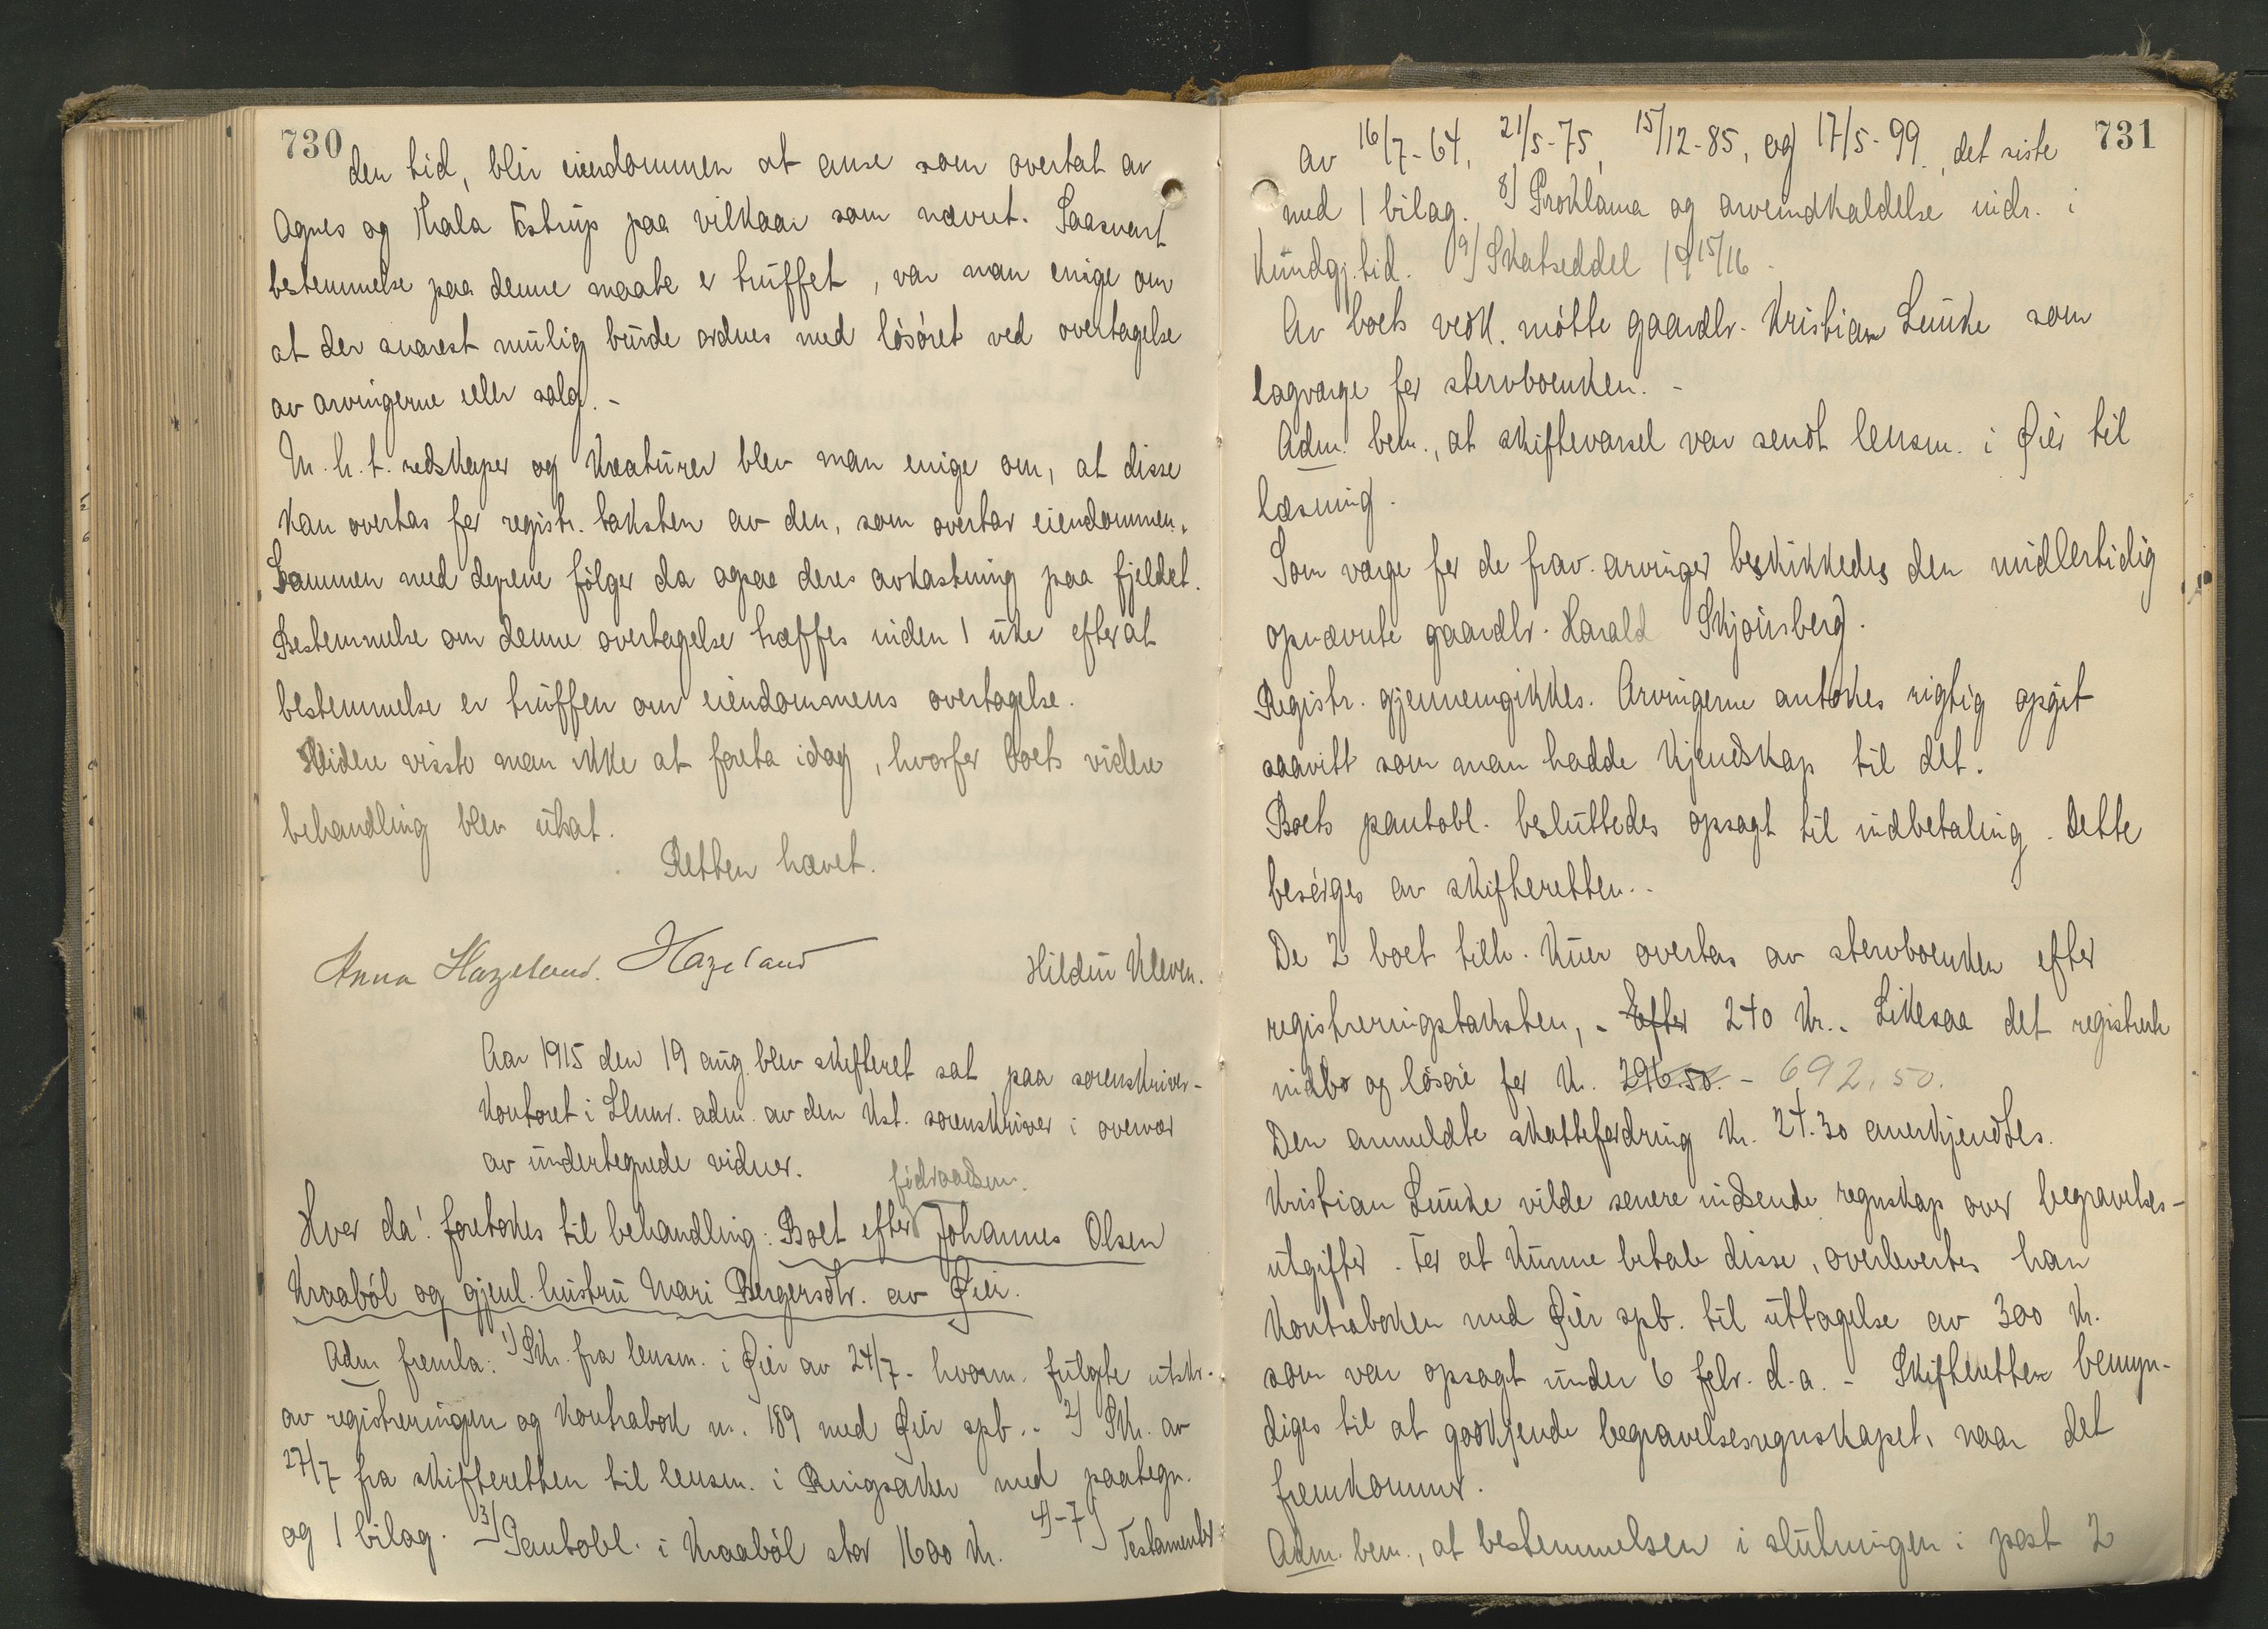 730
den tid, blir eiendommen at anse som overtat av
Agnes og Thala Estrup paa vilkaar som nævnt. Saasnart
bestemmelse paa denne maate er truffet, var man enige om
at der snarest mulig burde ordnes med løsøret ved overtagelse
av arvingerne eller salg. -
M. h. t. redskaper og kreaturer blev man enige om, at disse
kan overtas for registr. taksten av den, som overtar eiendommen.
Sammen med dyrene følger da ogsaa deres avkastning paa fjeldet.
Bestemmelse om denne overtagelse træffes inden 1 uke efterat
bestemmelse er truffen om eiendommens overtagelse.
Videre visste man ikke at foreta idag, hvorfor boets videre
behandling blev utsat.
Retten hævet.
Anna Hazeland. Hazeland Hildur Kleven.
Aar 1915 den 19 aug. blev skifteret sat paa sorenskriver-
kontoret i Llhmr. adm. av den kst. sorenskriver i overvær
av undertegnede vidner.
føderaadsm.
Hvor da! foretokes til behandling: Boet efter Johannes Olsen
Kraabøl og gjenl. hustru Mari Bergersdtr. av Øier.
Adm fremla: 1) Skr. fra lensm. i Øier av 24/7 - hvorm. fulgte utskr.
av registreringen og kontrabok nr. 189 med Øier spb. - 2) Skr. av
27/7 fra skifteretten til lensm. i Ringsaker med paategn.
og 1 bilag. 3) Pantobl. i Kraabøl stor 1600 kr. 4)-7) Testamenter
731
av 16/7-64, 21/5-75, 15/12-85, og 17/5-99, det siste
med 1 bilag. 8) Proklama og arveindkaldelse indr. i
Kundgj. tid. 9) Skatseddel 1915/16.
Av boets vedk. møtte gaardbr. Kristian Lunke som
lagværge for stervboenken. -
Adm. bem., at skiftevarsel var sendt lensm. i Øier til
læsning.
Som værge for de frav. arvinger beskikkedes den midlertidig
opnævnte gaardbr. Harald Skjønsberg.
Registr. gjennemgikkes. Arvingerne antokes rigtig opgit
saavitt som man hadde kjendskap til det.
Boets pantobl. besluttedes opsagt til indbetaling. Dette
besørges av skifteretten. -
De 2 boet tilh. kuer overtas av stervboenken efter
registreringstaksten, - Efter 240 kr. - Likesaa det registrerte
indbo og løsøre for kr. 296.50. - 692,50.
Den anmeldte skattefordring kr. 24.30 anerkjendtes.
Kristian Lunke vilde senere indsende regnskap over begravelses-
utgifter. For at kunne betale disse, overlevertes han
kontraboken med Øier spb. til uttagelse av 300 kr.
som var opsagt under 6 febr. d.a. - Skifteretten bemyn-
diges til at godkjende begravelsesregnskapet, naar det
fremkommer.
Adm. bem., at bestemmelsen i slutningen i post 2